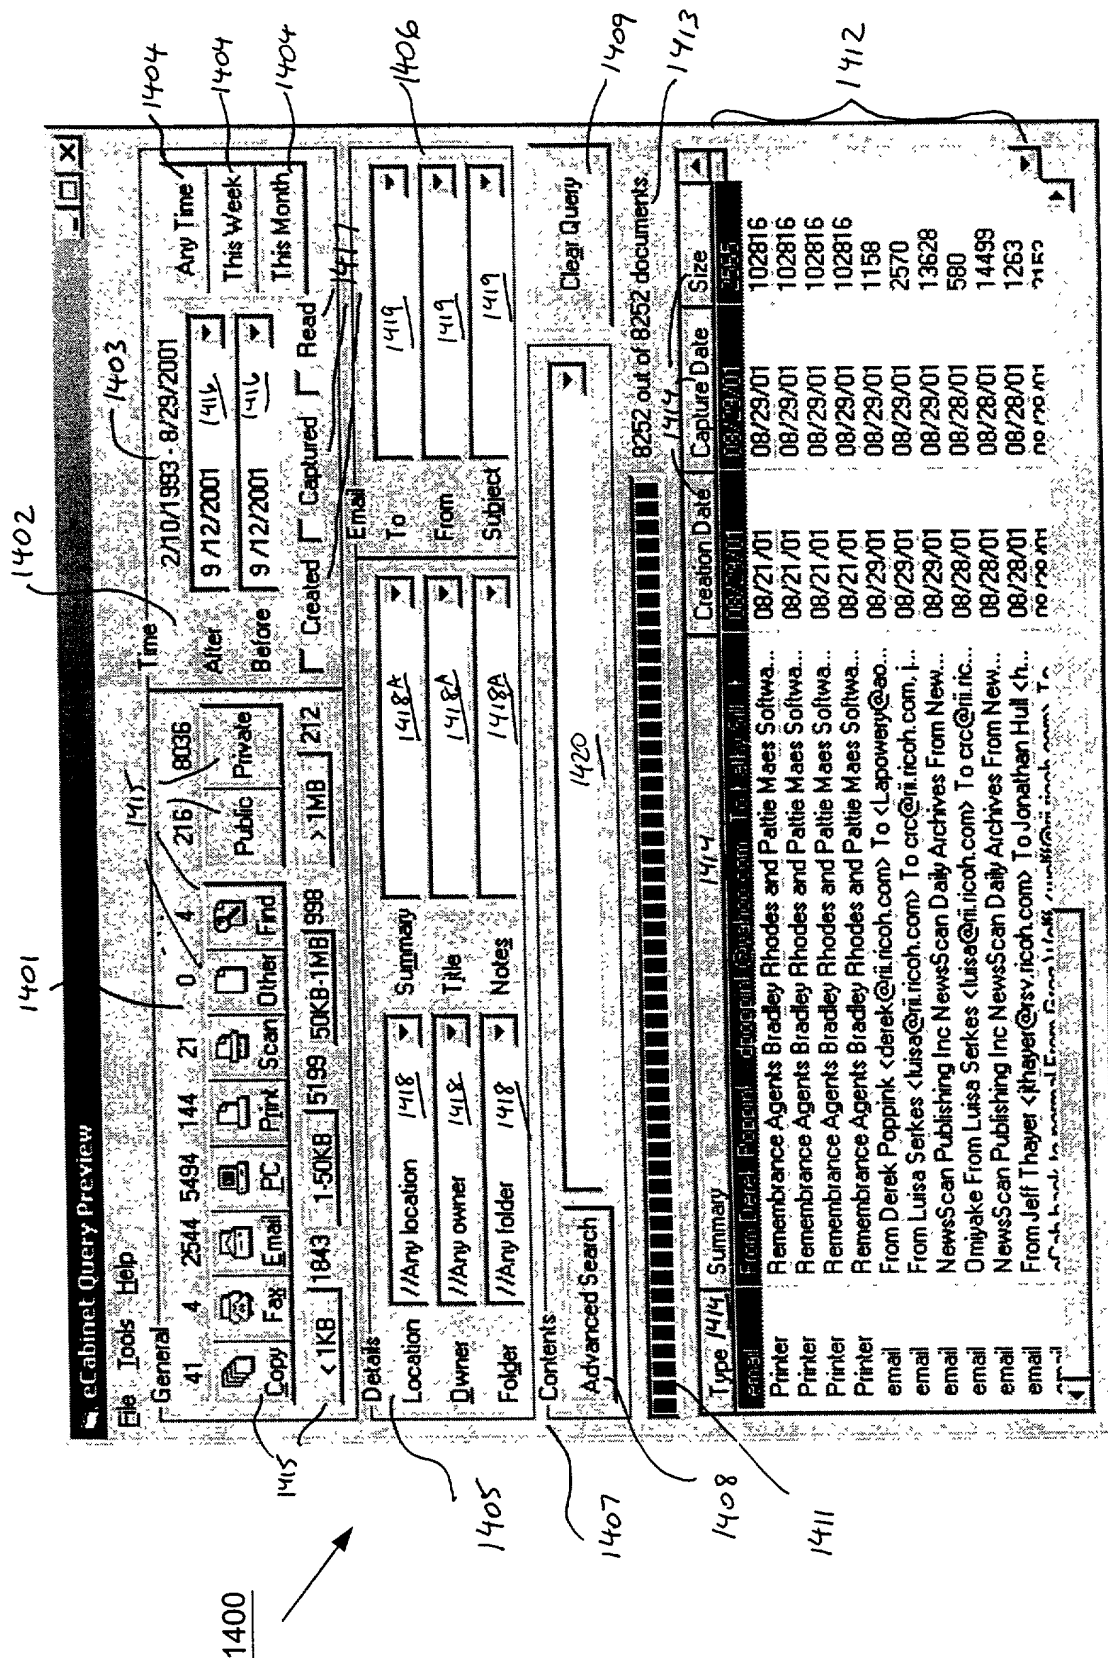 1400
1401
1402
1403
1404
1404
1404
1415
eCabinet Query Preview
File Tools Help
General
41 4 2544 5494 144 21 0 4 216 8036
Copy Fax Email PC Print Scan Other Find Public Private
< 1KB 1843 1-50KB 5199 50KB-1MB 998 > 1MB 212
Time 2/10/1993 - 8/29/2001
After 9 /12/2001 1416 Any Time
Before 9 /12/2001 1416 This Week
This Month
Created Captured Read 1417
1415
1405
1406
Details
Location //Any location 1418 Summary 1418A
Owner //Any owner 1418 Title 1418A
Folder //Any folder 1418 Notes 1418A
Email
To 1419
From 1419
Subject 1419
1407
Contents
Advanced Search 1420 Clear Query
1408
1409
1411
8252 out of 8252 documents.
1413
1414
Type 1414 Summary 1414 Creation Date Capture Date Size
1412
Printer Remembrance Agents Bradley Rhodes and Pattie Maes Softwa... 08/21/01 08/29/01 102816
Printer Remembrance Agents Bradley Rhodes and Pattie Maes Softwa... 08/21/01 08/29/01 102816
Printer Remembrance Agents Bradley Rhodes and Pattie Maes Softwa... 08/21/01 08/29/01 102816
Printer Remembrance Agents Bradley Rhodes and Pattie Maes Softwa... 08/21/01 08/29/01 102816
email From Derek Poppink <derek@rii.ricoh.com> To <Lapowery@ao... 08/29/01 08/29/01 1158
email From Luisa Serkes <luisa@rii.ricoh.com> To crc@rii.ricoh.com, j... 08/29/01 08/29/01 2570
email NewsScan Publishing Inc NewsScan Daily Archives From New... 08/29/01 08/29/01 13628
email Omiyake From Luisa Serkes <luisa@rii.ricoh.com> To crc@rii.ric... 08/28/01 08/28/01 580
email NewsScan Publishing Inc NewsScan Daily Archives From New... 08/28/01 08/28/01 14499
email From Jeff Thayer <jthayer@rsv.ricoh.com> To Jonathan Hull <h... 08/28/01 08/28/01 1263